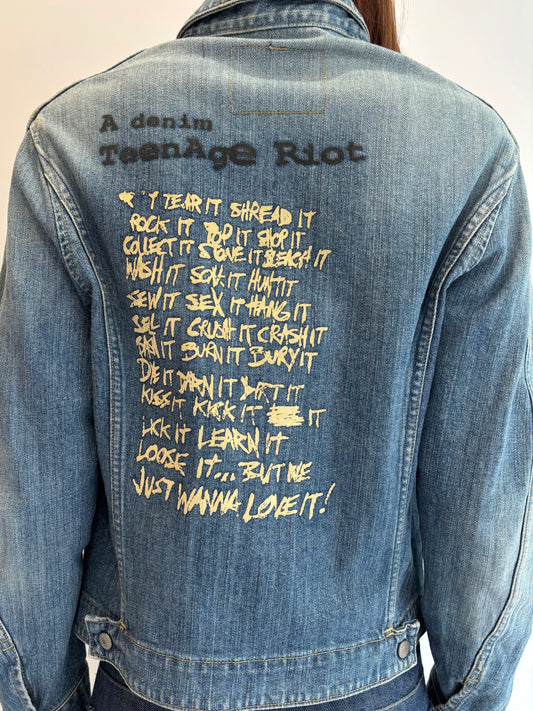 A denim
TeenAge Riot
TEAR IT SHREAD IT
ROCK IT POP IT SHOP IT
COLLECT IT STONE IT BLEACH IT
WASH IT SOIL IT HUNT IT
SEW IT SEX IT HANG IT
SELL IT CRUSH IT CRASH IT
IT BURN IT BURY IT
DYE IT DARN IT DIRT IT
KISS IT KICK IT IT
IT LEARN IT
LOOSE IT... BUT WE
JUST WANNA LOVE IT!